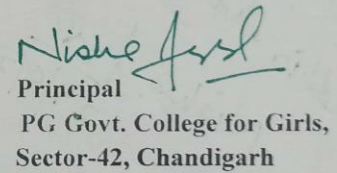 Nisha
Principal
PG Govt. College for Girls,
Sector-42, Chandigarh